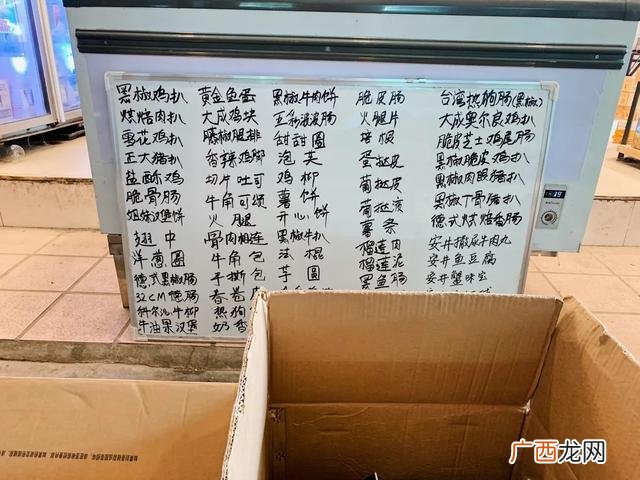 黑椒鸡扒 黄金鱼蛋 黑椒牛肉饼 脆皮肠 台湾热狗肠(黑椒)
烘焙肉扒 大成鸡块 脆皮 火腿片 大成奥尔良鸡扒
雪花鸡扒 藤椒腿排 甜甜圈 培根 脆皮芝士鸡尾肠
正大猪扒 香辣鸡脚 泡芙 蛋挞皮 黑椒脆皮鸡扒
盐酥鸡 切片吐司 鸡柳 葡挞皮 黑椒肉眼猪扒
脆骨肠 牛角可颂 薯饼 葡挞液 黑椒丁骨猪扒
姐妹汉堡饼 火腿 开心饼 薯条 德式烘焙香肠
翅中 骨肉相连 黑椒牛扒 榴莲肉 安井撒尿牛肉丸
洋葱圈 牛角包 法棍 榴莲泥 安井鱼豆腐
德式黑椒肠 手撕包 芋圆 黑鱼肠 安井蟹味宝
32CM热肠 春卷
科尔沁牛柳 热狗
牛油果汉堡 奶香
19
广西龙网